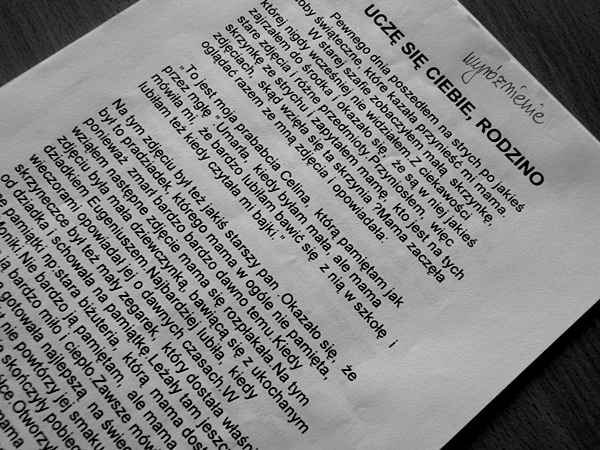 wyróżnienie
UCZĘ SIĘ CIEBIE, RODZINO
Pewnego dnia poszedłem na strych po jakieś
oby świąteczne, które kazała przynieść mi mama.
W starej szafie zobaczyłem małą skrzynkę,
której nigdy wcześniej nie widziałem. Z ciekawości
zajrzałem do środka i okazało się, że są w niej jakieś
stare zdjęcia i różne przedmioty. Przyniosłem, więc
skrzynkę ze strychu i zapytałem mamę, kto jest na tych
zdjęciach, skąd wzięła się ta skrzynia. Mama zaczęła
oglądać razem ze mną zdjęcia i opowiadała:
„To jest moja prababcia Celina, którą pamiętam jak
przez mgłę "Umarła, kiedy byłam mała, ale mama
mówiła mi, że bardzo lubiłam bawić się z nią w szkołę i
lubiłam też kiedy czytała mi bajki."
Na tym zdjęciu był też jakiś starszy pan. Okazało się, że
był to pradziadek, którego mama w ogóle nie pamięta,
ponieważ zmarł bardzo bardzo dawno temu. Kiedy
wziąłem następne zdjęcie mama się rozpłakała. Na tym
zdjęciu była mała dziewczynka, bawiąca się z ukochanym
dziadkiem Eugeniuszem. Najbardziej lubiła, kiedy
wieczorami opowiadał jej o dawnych czasach. W
skrzyneczce był też mały zegarek, który dostała właśnie
od dziadka i schowała na pamiątkę. Leżały tam jeszcze
ne pamiątki, np. stara biżuteria, którą mama dost
Nie bardzo ją pamiętam, ale mama
ją bardzo miło i ciepło. Zawsze mówi
gotowała najlepszą na świec
nie powtórzy jej smaku
skończyły pobiec
Otworzył
mama